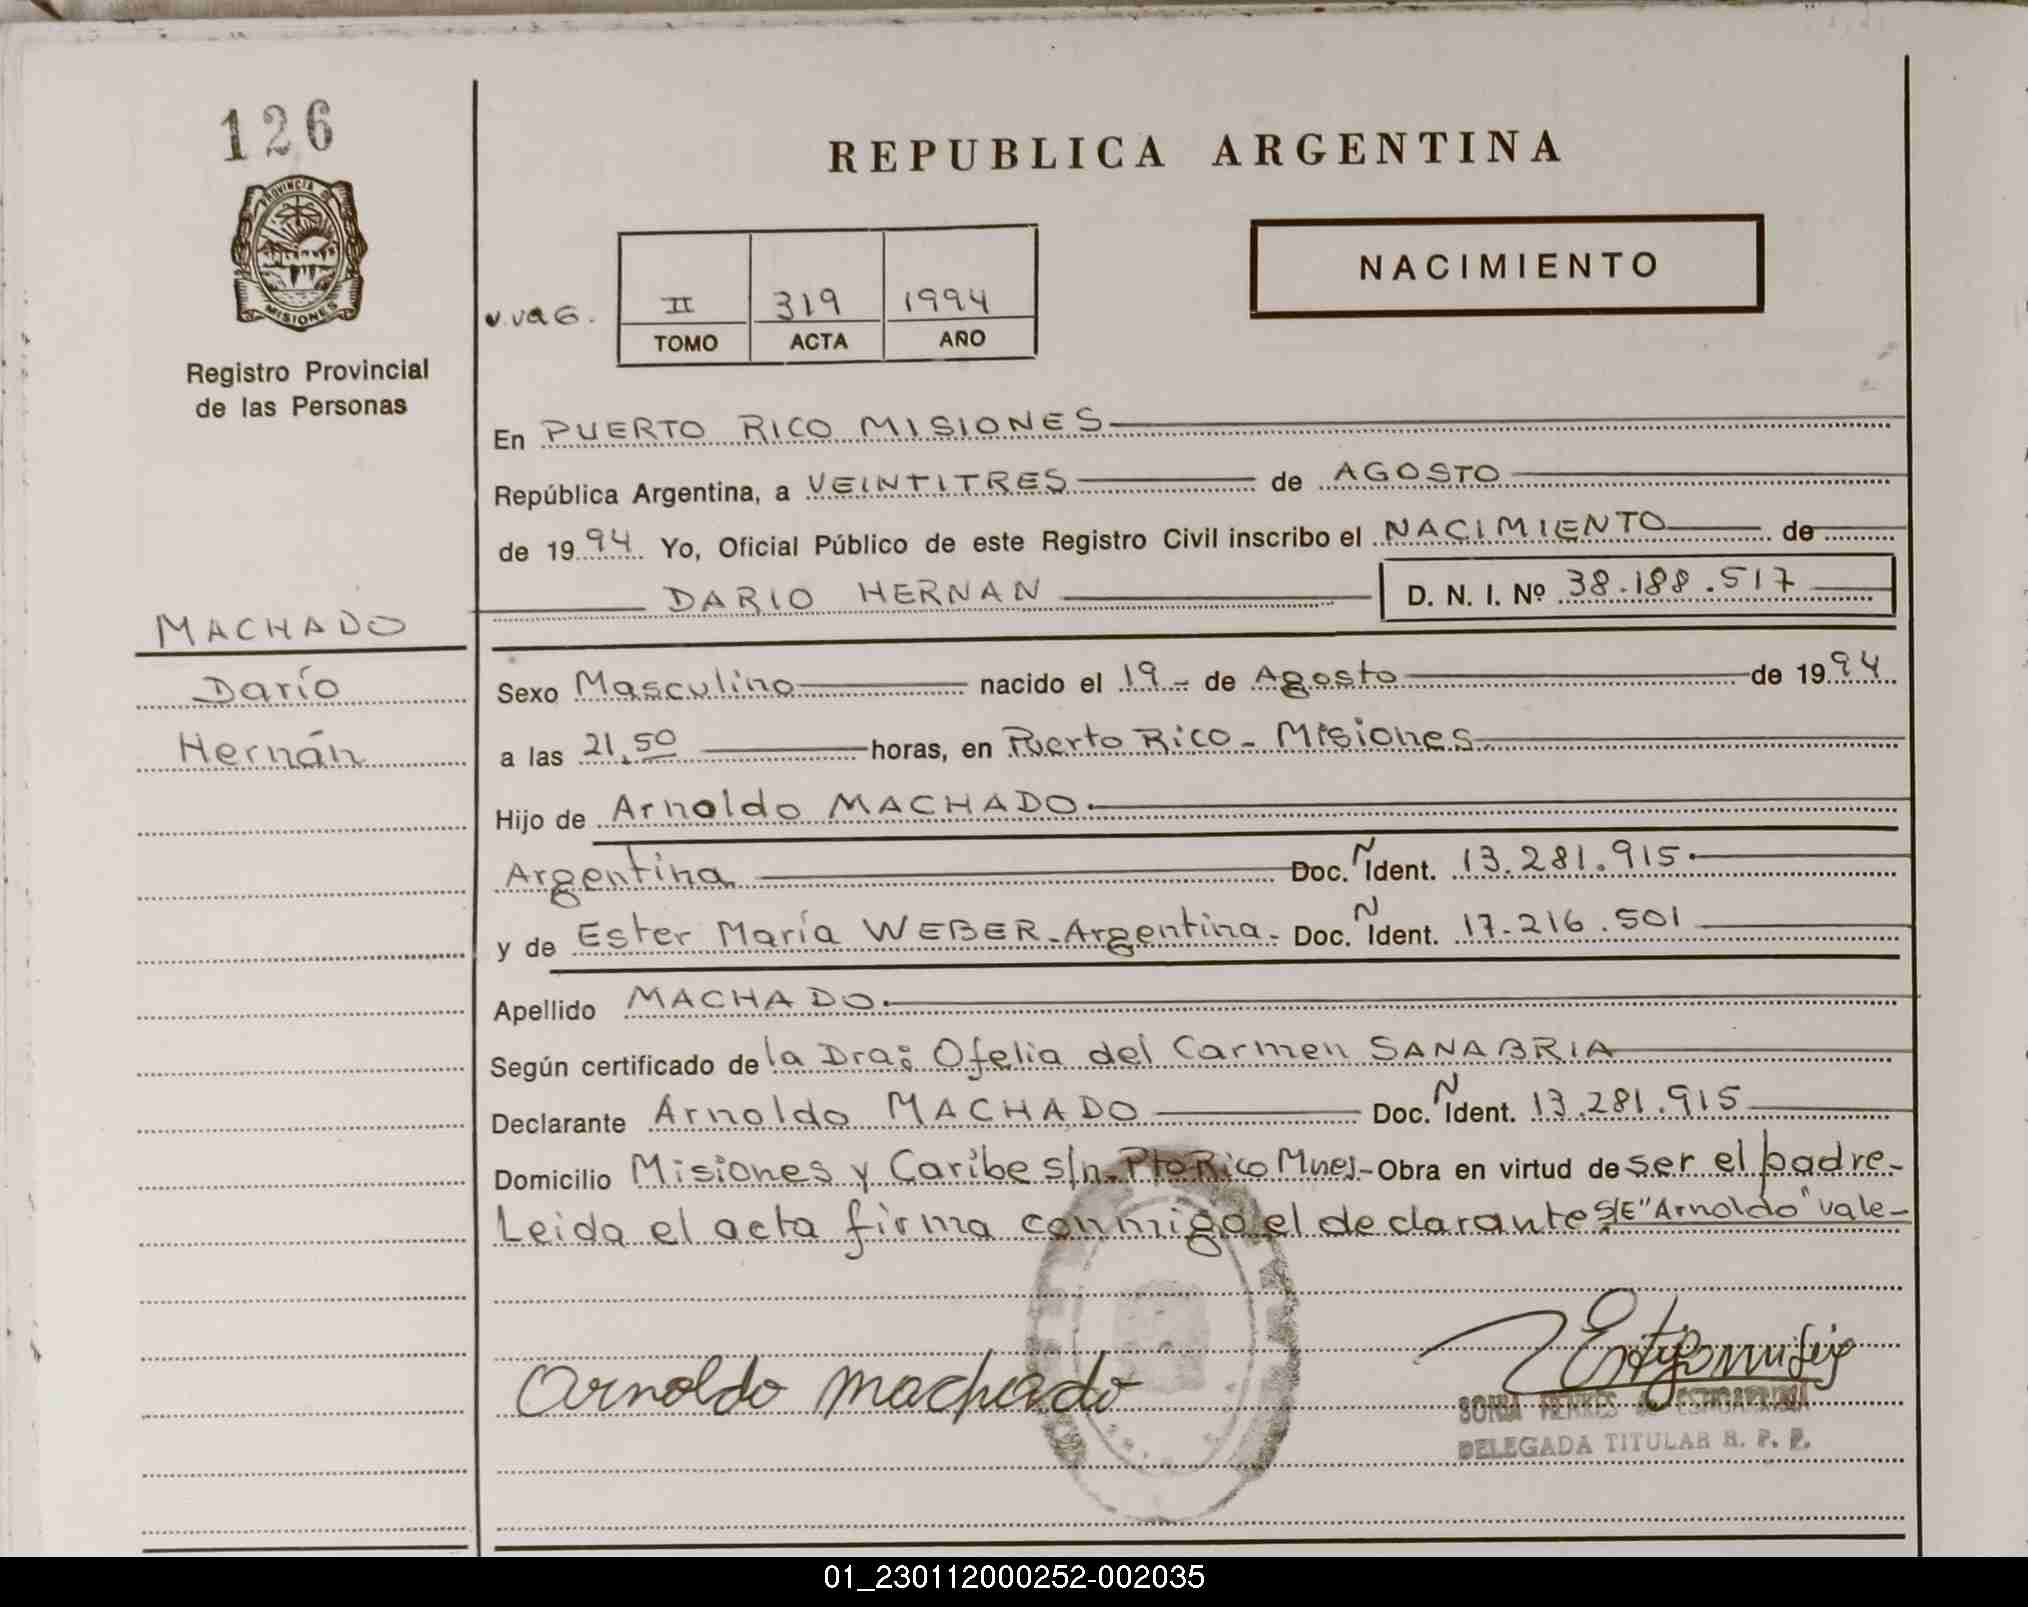 126
PROVINCIA DE
MISIONES
Registro Provincial
de las Personas
MACHADO
Darío
Hernán
REPUBLICA ARGENTINA
NACIMIENTO
II 319 1994
TOMO ACTA AÑO
En PUERTO RICO MISIONES
República Argentina, a VEINTITRES de AGOSTO
de 1994 Yo, Oficial Público de este Registro Civil inscribo el NACIMIENTO de
DARIO HERNAN D. N. I. Nº 38.188.517
Sexo Masculino nacido el 19- de Agosto de 1994
a las 21,50 horas, en Puerto Rico - Misiones
Hijo de Arnoldo MACHADO.
Argentina Doc. Ñ Ident. 13.281.915.
y de Ester María WEBER-Argentina- Doc. Ñ Ident. 17.216.501
Apellido MACHADO.
Según certificado de la Dra: Ofelia del Carmen SANABRIA
Declarante Arnoldo MACHADO Doc. Ñ Ident. 13.281.915
Domicilio Misiones y Caribe s/n-Pto Rico Mnes-Obra en virtud de ser el padre-
Leida el acta firma conmigo el declarante S/E "Arnoldo" vale-
Arnoldo Machado
SONIA HENKES de
DELEGADA TITULAR R. P. P.
01_230112000252-002035